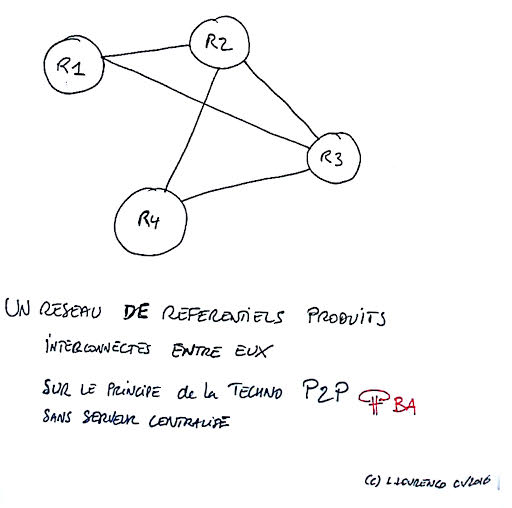 R1
R2
R3
R4
UN RESEAU DE REFERENTIELS PRODUITS
INTERCONNECTES ENTRE EUX
SUR LE PRINCIPE de la TECHNO P2P
BA
SANS SERVEUR CENTRALISE
(C) LLOURENCO